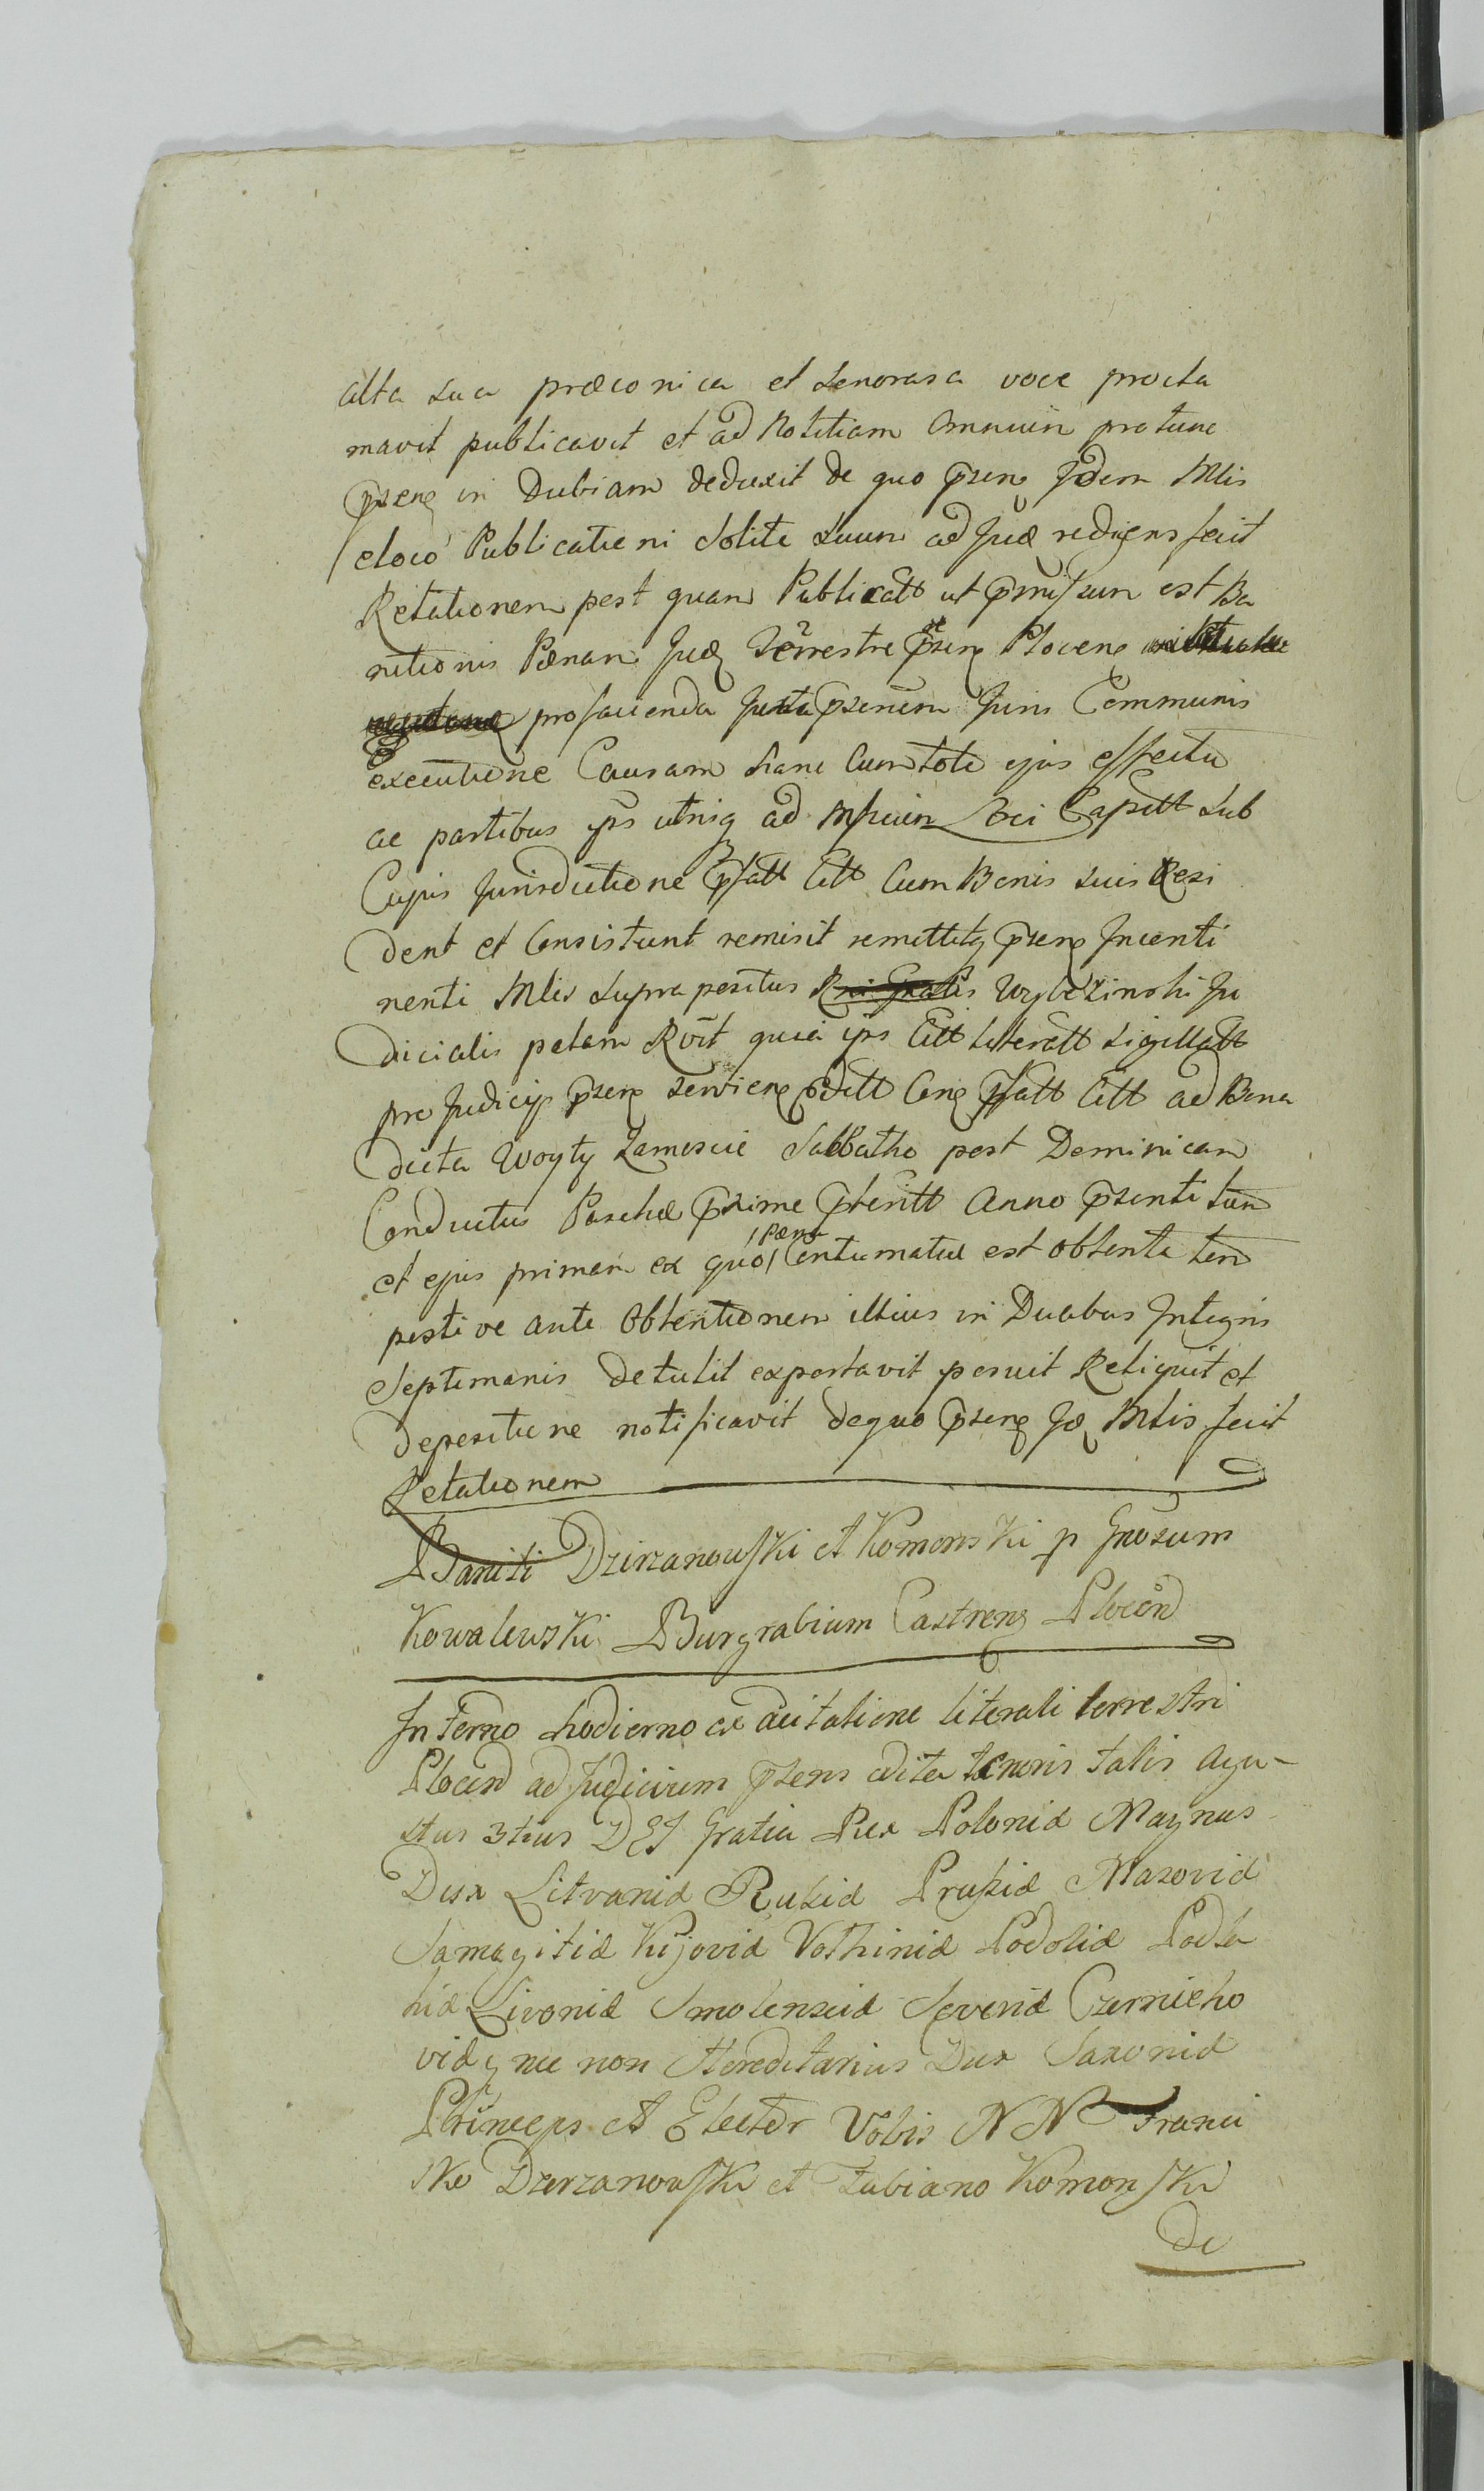 alta sua præconica et senorasa voce procla
mavit publicavit et ad Notitiam Omnium protunc
pr̃zenq in Dubiam deduxit de quo pr̃zenq Jdem Mlis
eloco Publicationi Solito suum ad Jud redigens fecit
Relationem post quam Publicatt ut p̃missum est Ba
nitionis Pænam Judq Terrestre pr̃senq Plocenq
pro facienda Juxta pr̃zenem Juris Communis
executione Causam hanc Cum toto ejus effectu
ac partibus ip̃s utrisq ad Officium Loci Capitt Sub
Cujus Jurisdictione p̃fatt Citt Cum Bonis suis Resi
dent et Consistunt remisit remittitq pr̃zenq Jnconti
nenti Mlis Supra positus Wybrzinski Ju
dicialis palam Rõit quia ip̃s Citt Literatt Sigillatt
pro Judicijs pr̃zenq servienq editt Conq p̃fatt Citt ad Bona
dicta Woyty Zamoscie Sabbatho post Dominicam
Conductus Paschæ p̃xime p̃teritt Anno pr̃zenti tum
et ejus primam ex quo /Pæna/ Contumatiæ est obtenta tem
pestive ante Obtentionem illius in Duabus Integris
Septimanis detulit exportavit posuit Reliquit et
depositione notificavit dequo pr̃zenq Jdq Mlis fecit
Relationem
Baniti Dzirzanowski et Komorski p Gnosum
Kowalewski Burgrabium Castrenq Plocen
In Termo hodierno ex Citatione literali terrestri
Plocen ad Judicium pr̃zens edita tenoris talis Agu-
stus 3tius DEI Gratia Rex Poloniæ Magnus
Dux Litvaniæ Rusiæ Prusiæ Masoviæ
Samagitiæ Kijoviæ Volhiniæ Podoliæ Podla
hiæ Livoniæ Smolensciæ Severiæ Czernicho
viæq nec non Hereditarius Dux Saxoniæ
Princeps et Elector Vobis NN Franci
sko Dzerzanowski et Fabiano Komonski
de